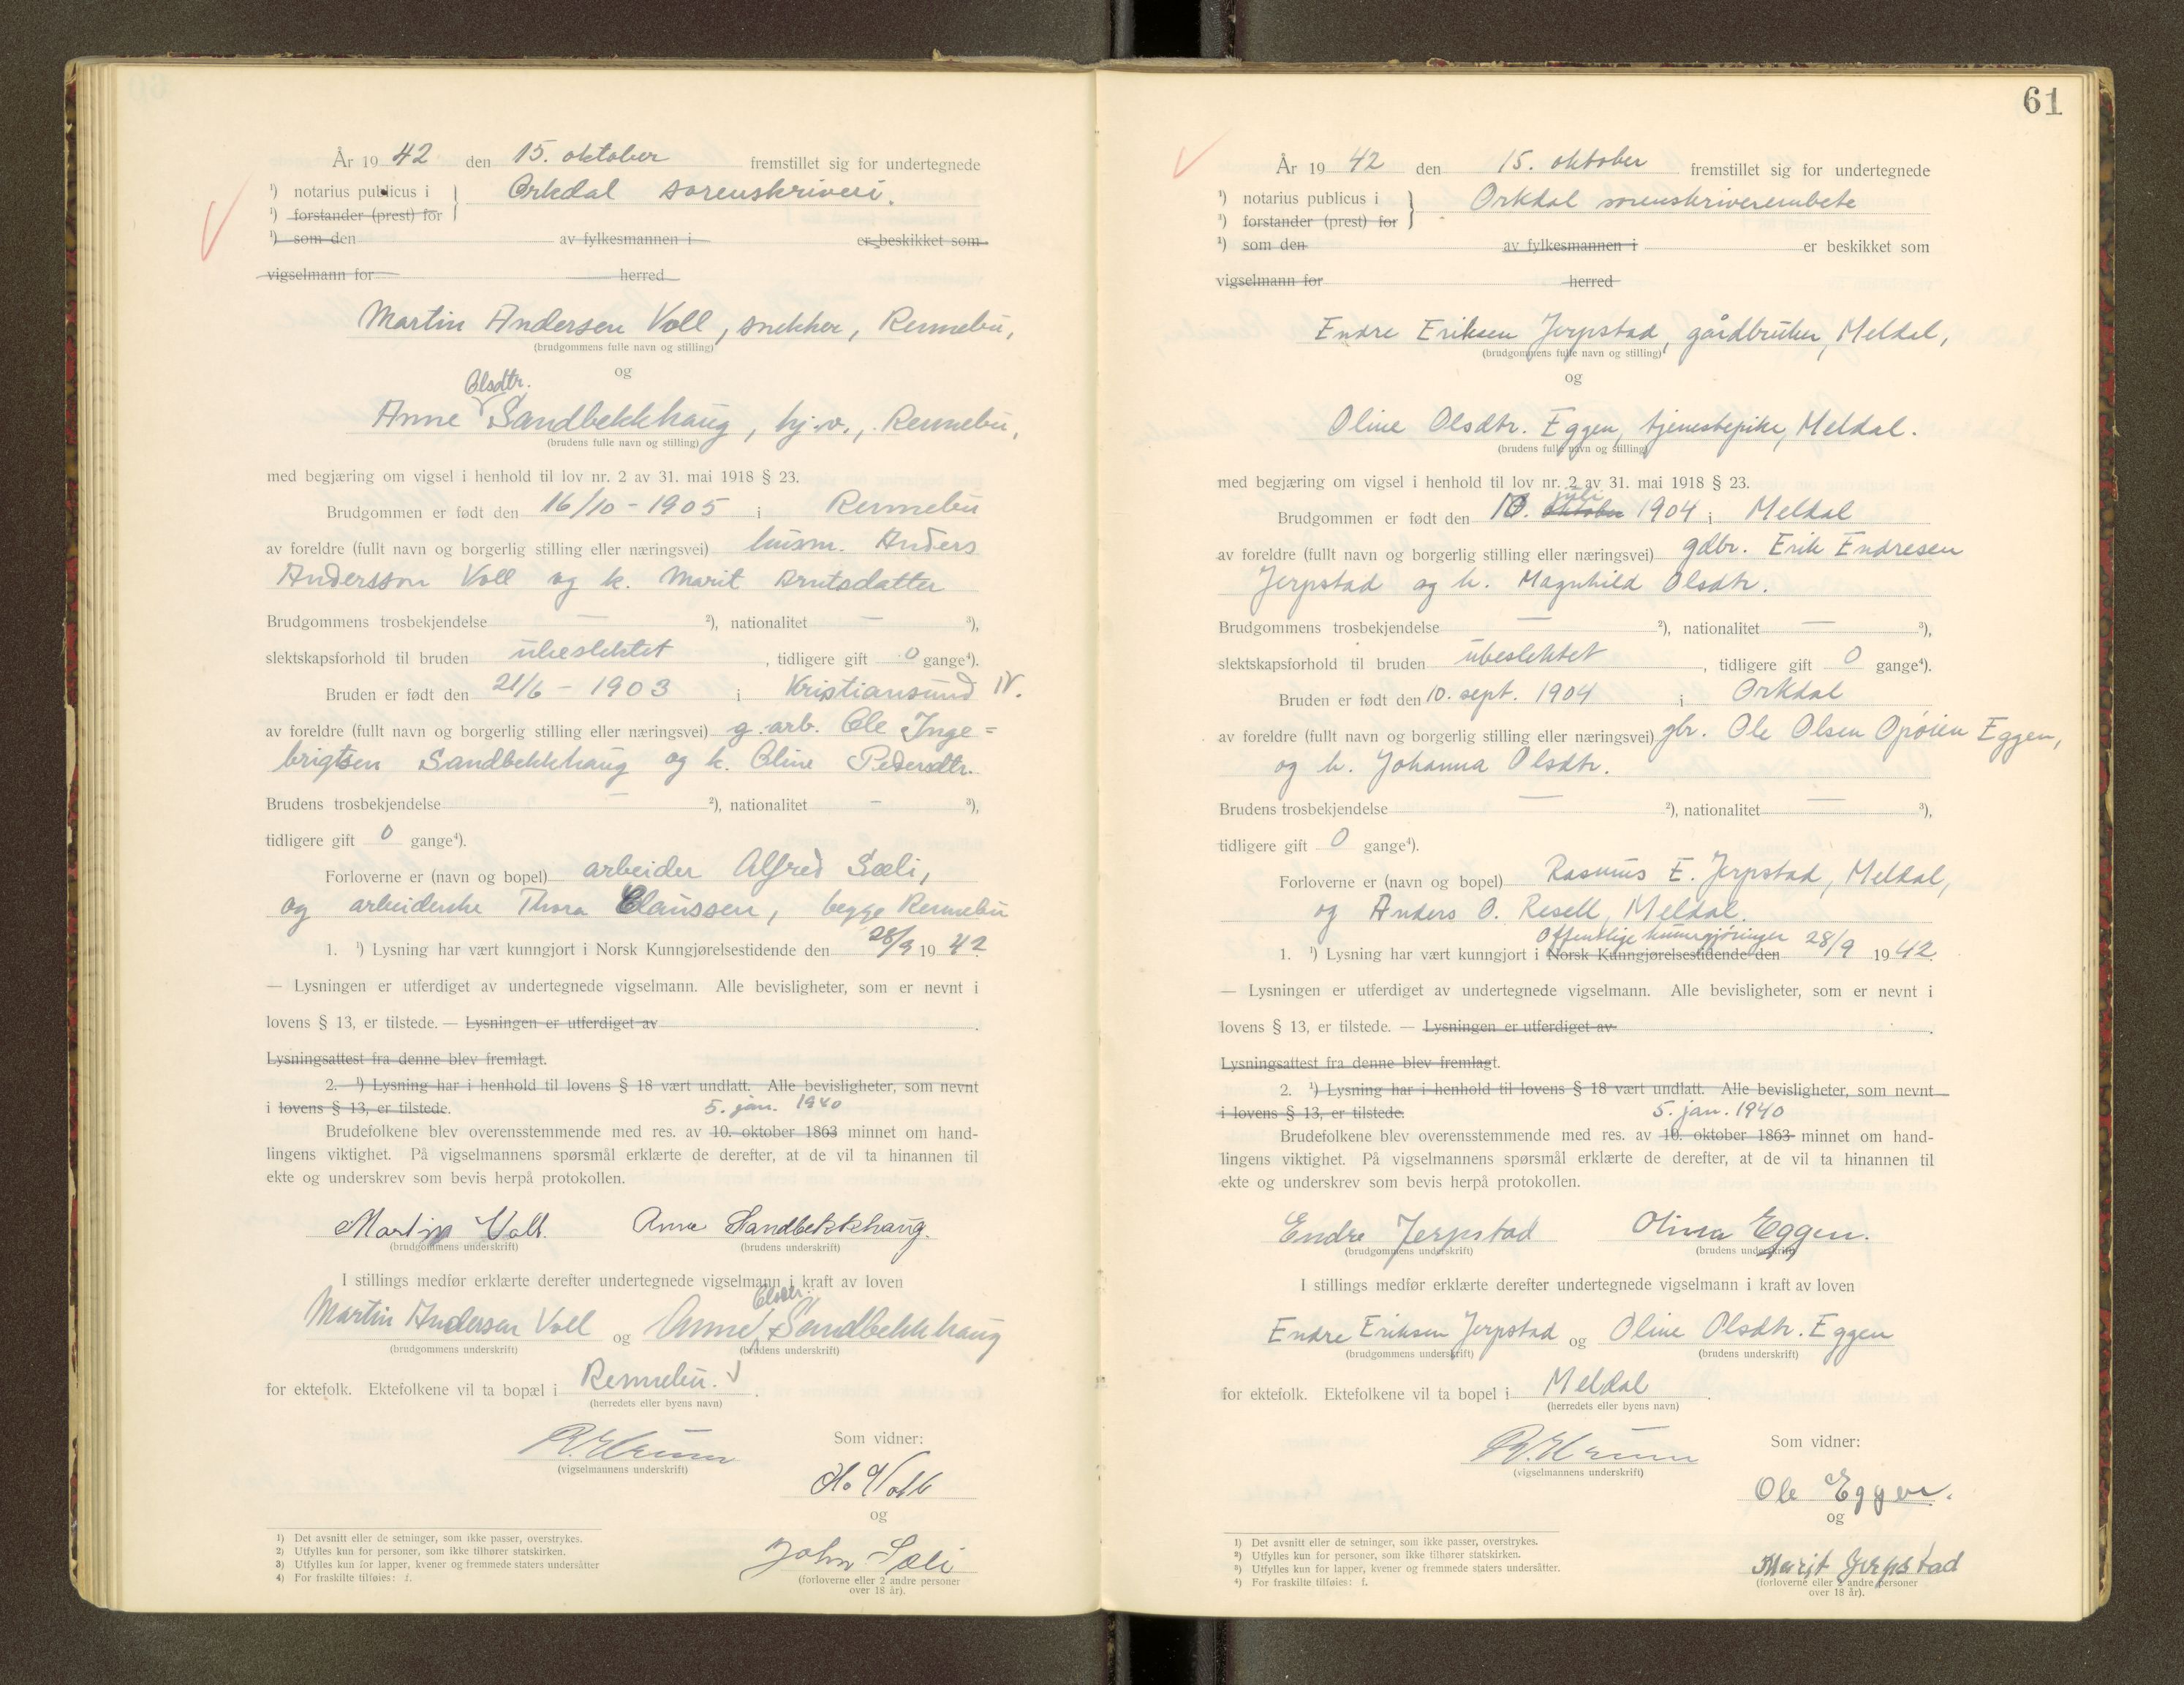 År 19 42 den 15. oktober fremstillet sig for undertegnede
¹) notarius publicus i } Orkdal sorenskriveri.
¹) forstander (prest) for
¹) som den av fylkesmannen i er beskikket som
vigselmann for herred
Martin Andersen Voll, snekker, Rennebu,
(brudgommens fulle navn og stilling)
og
Olsdtr.
Anne Sandbekkhaug, hj.v., Rennebu,
(brudens fulle navn og stilling)
med begjæring om vigsel i henhold til lov nr. 2 av 31. mai 1918 § 23.
Brudgommen er født den 16/10 - 1905 i Rennebu
av foreldre (fullt navn og borgerlig stilling eller næringsvei) husm. Anders
Andersson Voll og k. Marit Arntsdatter
Brudgommens trosbekjendelse — ²), nationalitet — ³),
slektskapsforhold til bruden ubeslektet, tidligere gift 0 gange⁴).
Bruden er født den 21/6 - 1903 i Kristiansund N.
av foreldre (fullt navn og borgerlig stilling eller næringsvei) g.arb. Ole Inge=
brigtsen Sandbekkhaug og k. Oline Pedersdtr.
Brudens trosbekjendelse — ²), nationalitet — ³),
tidligere gift 0 gange⁴).
Forloverne er (navn og bopel) arbeider Alfred Sæli,
og arbeiderske Thora Claussen, begge Rennebu
1. ¹) Lysning har vært kunngjort i Norsk Kunngjørelsestidende den 28/9 19 42
— Lysningen er utferdiget av undertegnede vigselmann. Alle bevisligheter, som er nevnt i
lovens § 13, er tilstede. — Lysningen er utferdiget av .
Lysningsattest fra denne blev fremlagt.
2. ¹) Lysning har i henhold til lovens § 18 vært undlatt. Alle bevisligheter, som nevnt
i lovens § 13, er tilstede. 5. jan. 1940
Brudefolkene blev overensstemmende med res. av 10. oktober 1863 minnet om hand-
lingens viktighet. På vigselmannens spørsmål erklærte de derefter, at de vil ta hinannen til
ekte og underskrev som bevis herpå protokollen.
Martin Voll. Anne Sandbekkhaug.
(brudgommens underskrift) (brudens underskrift)
I stillings medfør erklærte derefter undertegnede vigselmann i kraft av loven
Olsdtr.
Martin Andersen Voll og Anne Sandbekkhaug
(brudgommens underskrift) (brudens underskrift)
for ektefolk. Ektefolkene vil ta bopæl i Rennebu.
(herredets eller byens navn)
Som vidner:
(vigselmannens underskrift)
Voll
og
John Sæli
(forloverne eller 2 andre personer
over 18 år).
¹) Det avsnitt eller de setninger, som ikke passer, overstrykes.
²) Utfylles kun for personer, som ikke tilhører statskirken.
³) Utfylles kun for lapper, kvener og fremmede staters undersåtter
⁴) For fraskilte tilføies: f.
61
År 19 42 den 15. oktober fremstillet sig for undertegnede
¹) notarius publicus i } Orkdal sorenskriverembete
¹) forstander (prest) for
¹) som den av fylkesmannen i er beskikket som
vigselmann for herred
Endre Eriksen Jerpstad, gårdbruker, Meldal,
(brudgommens fulle navn og stilling)
og
Oline Olsdtr. Eggen, tjenestepike, Meldal.
(brudens fulle navn og stilling)
med begjæring om vigsel i henhold til lov nr. 2 av 31. mai 1918 § 23.
juli
Brudgommen er født den 10. oktober 1904 i Meldal
av foreldre (fullt navn og borgerlig stilling eller næringsvei) gdbr. Erik Endresen
Jerpstad og h. Magnhild Olsdtr.
Brudgommens trosbekjendelse — ²), nationalitet — ³),
slektskapsforhold til bruden ubeslektet, tidligere gift 0 gange⁴).
Bruden er født den 10. sept. 1904 i Orkdal
av foreldre (fullt navn og borgerlig stilling eller næringsvei) gbr. Ole Olsen Opøien Eggen,
og h. Johanna Olsdtr.
Brudens trosbekjendelse — ²), nationalitet — ³),
tidligere gift 0 gange⁴).
Forloverne er (navn og bopel) Rasmus E. Jerpstad, Meldal,
og Anders O. Resell, Meldal.
Offentlige kunngjøringer
1. ¹) Lysning har vært kunngjort i Norsk Kunngjørelsestidende den 28/9 19 42.
— Lysningen er utferdiget av undertegnede vigselmann. Alle bevisligheter, som er nevnt i
lovens § 13, er tilstede. — Lysningen er utferdiget av .
Lysningsattest fra denne blev fremlagt.
2. ¹) Lysning har i henhold til lovens § 18 vært undlatt. Alle bevisligheter, som nevnt
i lovens § 13, er tilstede. 5. jan. 1940
Brudefolkene blev overensstemmende med res. av 10. oktober 1863 minnet om hand-
lingens viktighet. På vigselmannens spørsmål erklærte de derefter, at de vil ta hinannen til
ekte og underskrev som bevis herpå protokollen.
Endre Jerpstad Olina Eggen.
(brudgommens underskrift) (brudens underskrift)
I stillings medfør erklærte derefter undertegnede vigselmann i kraft av loven
Endre Eriksen Jerpstad og Oline Olsdtr. Eggen
(brudgommens underskrift) (brudens underskrift)
for ektefolk. Ektefolkene vil ta bopel i Meldal.
(herredets eller byens navn)
Som vidner:
(vigselmannens underskrift)
Ole Eggen.
og
Marit Jerpstad
(forloverne eller 2 andre personer
over 18 år).
¹) Det avsnitt eller de setninger, som ikke passer, overstrykes.
²) Utfylles kun for personer, som ikke tilhører statskirken.
³) Utfylles kun for lapper, kvener og fremmede staters undersåtter.
⁴) For fraskilte tilføies: f.